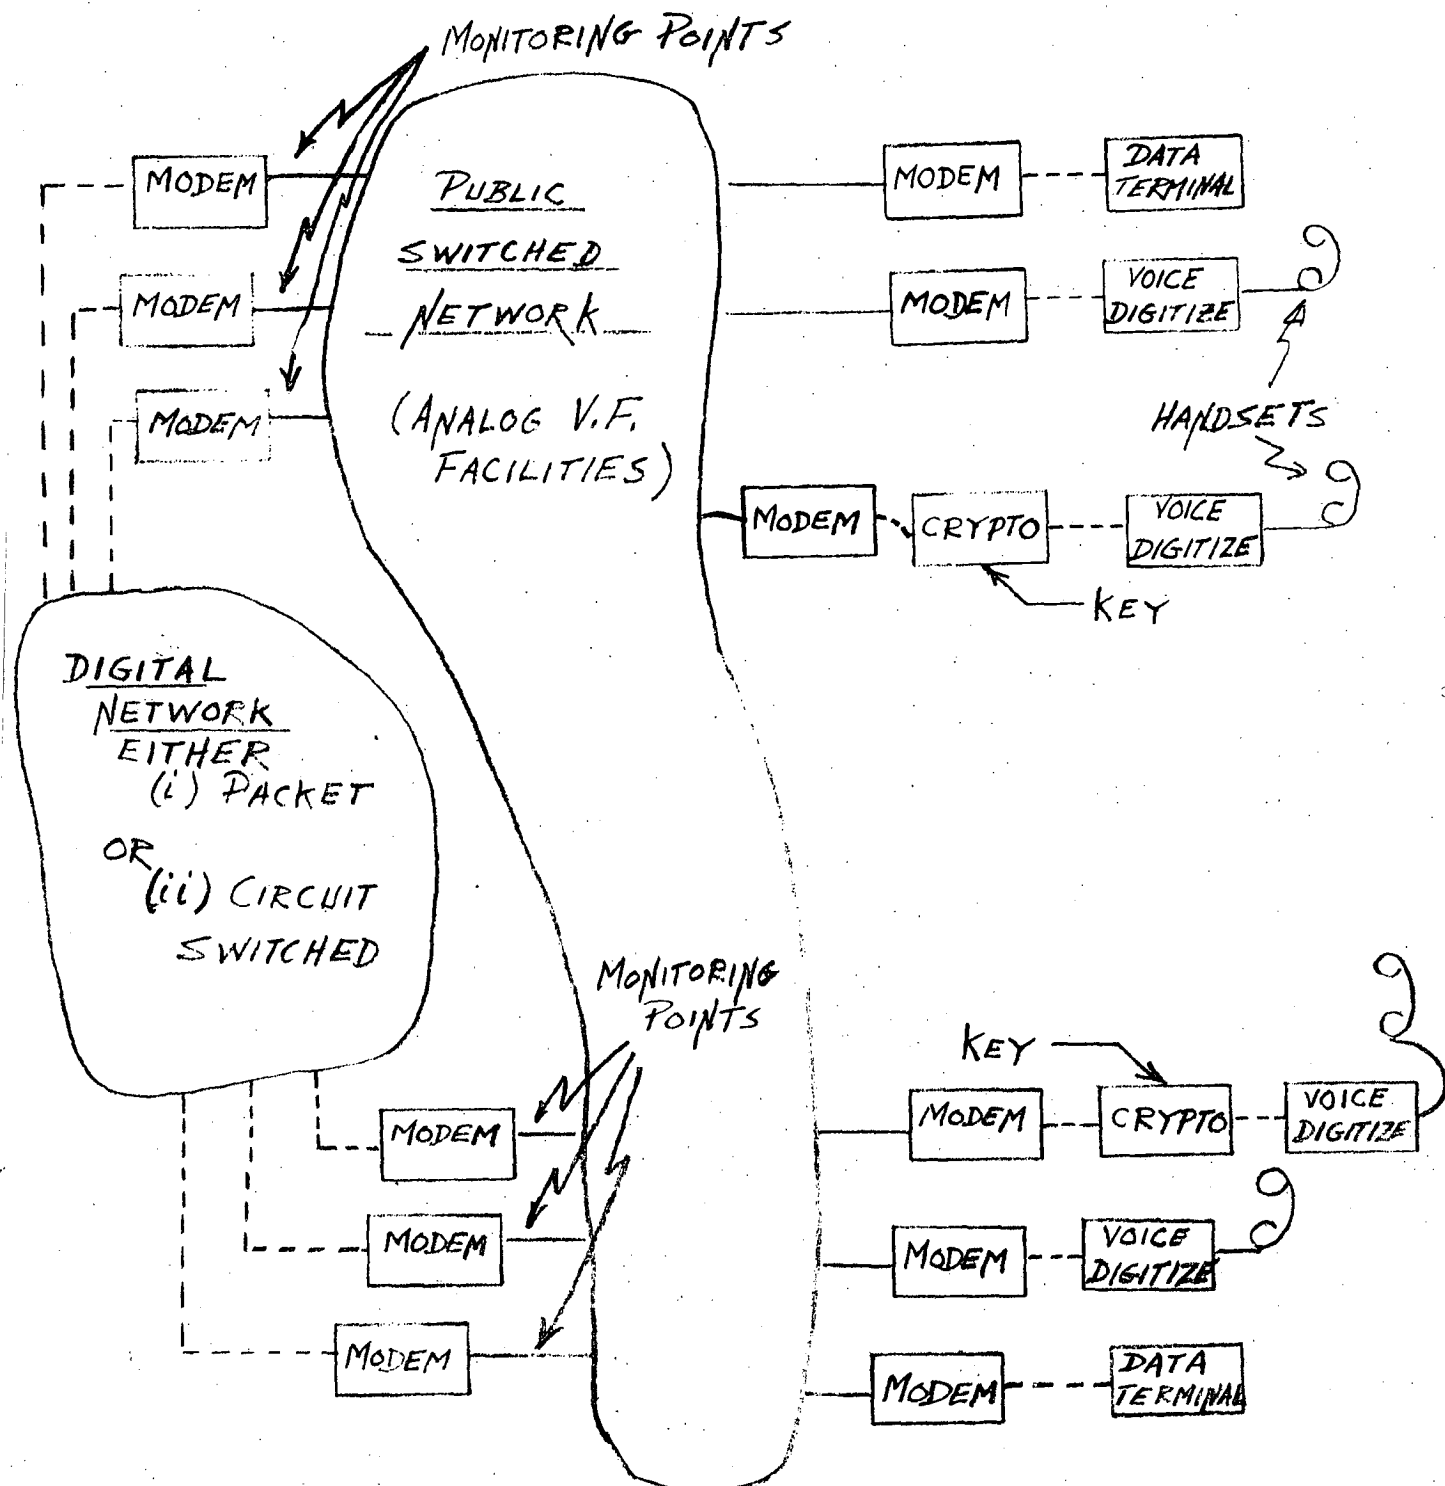 MONITORING POINTS
MODEM
PUBLIC
SWITCHED
NETWORK
(ANALOG V.F.
FACILITIES)
MODEM
MODEM
MODEM
DATA
TERMINAL
MODEM
VOICE
DIGITIZE
HANDSETS
MODEM
CRYPTO
VOICE
DIGITIZE
KEY
DIGITAL
NETWORK
EITHER
(i) PACKET
OR
(ii) CIRCUIT
SWITCHED
MONITORING
POINTS
KEY
MODEM
MODEM
CRYPTO
VOICE
DIGITIZE
MODEM
MODEM
VOICE
DIGITIZE
MODEM
MODEM
DATA
TERMINAL